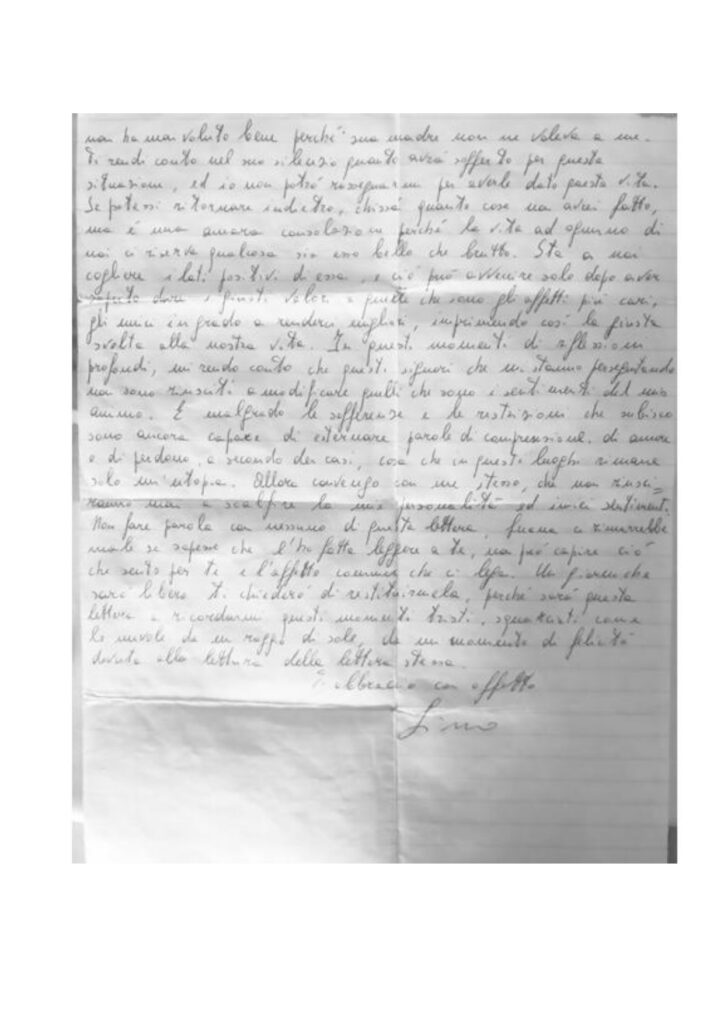 non ha mai voluto bene perché sua madre non ne voleva a me.
Ti rendi conto nel suo silenzio quanto avrà sofferto per questa
situazione, ed io non potrò rassegnarmi per averle dato questa vita.
Se potessi ritornare indietro, chissà quante cose non avrei fatto,
ma è una amara consolazione perché la vita ad ognuno di
noi ci riserva qualcosa sia esso bello che brutto. Sta a noi
cogliere i lati positivi di essa, e ciò può avvenire solo dopo aver
saputo dare i giusti valori a quelli che sono gli affetti più cari,
gli unici in grado a renderci migliori, imprimendo così la giusta
svolta alla nostra vita. In questi momenti di riflessioni
profondi, mi rendo conto che questi signori che mi stanno perseguitando
non sono riusciti a modificare quelli che sono i sentimenti del mio
animo. E malgrado le sofferenze e le restrizioni che subisco
sono ancora capace di esternare parole di comprensione, di amore
e di perdono, a secondo dei casi, cosa che in questi luoghi rimane
solo un'utopia. Allora convengo con me stesso, che non riusci=
ranno mai a scalfire la mia personalità ed i miei sentimenti.
Non fare parola con nessuno di questa lettera, ci rimarrebbe
male se sapesse che l'ho fatta leggere a te, ma può capire ciò
che sento per te e l'affetto comune che ci lega. Un giorno che
sarò libero ti chiederò di restituirmela, perché sarà questa
lettera a ricordarmi questi momenti tristi, squarciati come
le nuvole da un raggio di sole, da un momento di felicità
dovuta alla lettura della lettera stessa.
Ti abbraccio con affetto